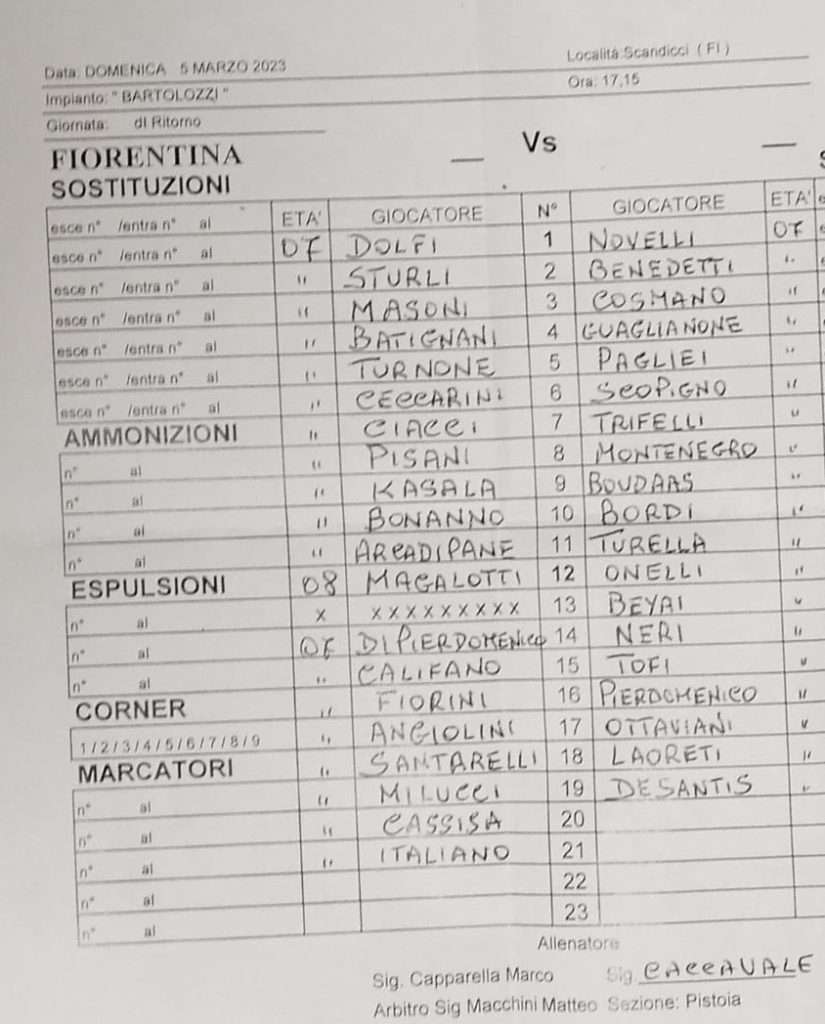 Data: DOMENICA 5 MARZO 2023 Località:Scandicci ( FI )
Impianto: " BARTOLOZZI " Ora: 17,15
Giornata: di Ritorno
FIORENTINA — Vs —
SOSTITUZIONI
esce n° /entra n° al ETA' GIOCATORE N° GIOCATORE ETA'
esce n° /entra n° al 07 DOLFI 1 NOVELLI 07
esce n° /entra n° al " STURLI 2 BENEDETTI "
esce n° /entra n° al " MASONI 3 COSMANO "
esce n° /entra n° al " BATIGNANI 4 GUAGLIANONE "
esce n° /entra n° al " TURNONE 5 PAGLIEI "
esce n° /entra n° al " CECCARINI 6 SCOPIGNO "
AMMONIZIONI " CIACCI 7 TRIFELLI "
n° al " PISANI 8 MONTENEGRO "
n° al " KASALA 9 BOUDAAS "
n° al " BONANNO 10 BORDI "
n° al " ARCADIPANE 11 TURELLA "
ESPULSIONI 08 MAGALOTTI 12 ONELLI "
n° al X XXXXXXXXX 13 BEYAI "
n° al 07 DI PIERDOMENICO 14 NERI "
n° al " CALIFANO 15 TOFI "
CORNER " FIORINI 16 PIERDOMENICO "
1/2/3/4/5/6/7/8/9 " ANGIOLINI 17 OTTAVIANI "
MARCATORI " SANTARELLI 18 LAORETI "
n° al " MILUCCI 19 DESANTIS "
n° al " CASSISA 20
n° al " ITALIANO 21
n° al 22
n° al 23
Allenatore
Sig. Capparella Marco Sig CACCAVALE
Arbitro Sig Macchini Matteo Sezione: Pistoia